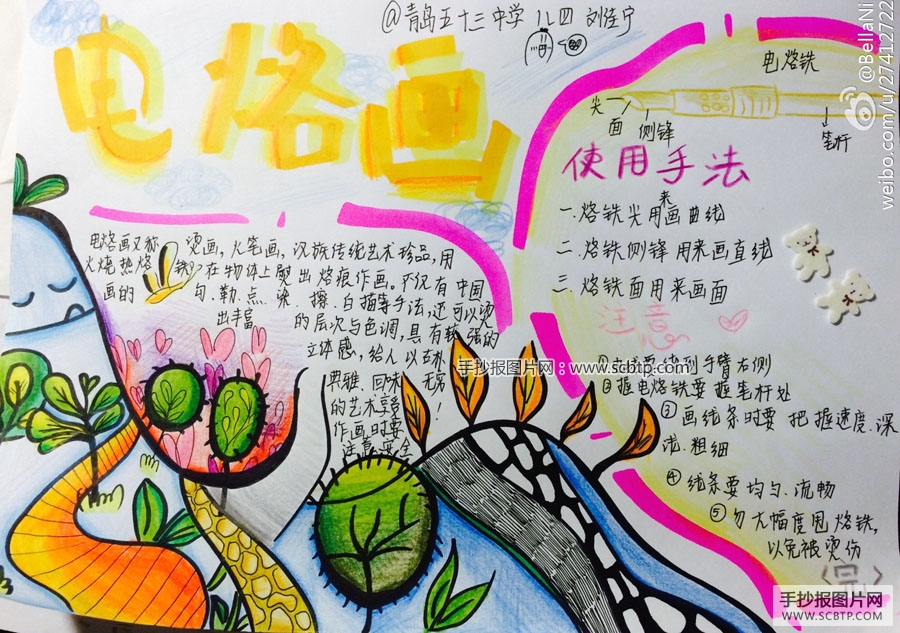 @青岛五十三中学 八四 刘佳宁
电烙画
@BellaNi
weibo.com/u/27412722
电烙铁
尖
面
侧锋
笔杆
使用手法
一.烙铁尖用来画曲线
二.烙铁侧锋用来画直线
三.烙铁面用来画面
注意
①电线要绕到手臂右侧
②握电烙铁要握笔杆处
③画线条时要把握速度.深
浅.粗细
④线条要均匀、流畅
⑤勿大幅度甩烙铁,
以免被烫伤
电烙画又称 烫画,火笔画,汉族传统艺术珍品,用
火烧热烙铁在物体上熨出烙痕作画。不仅有中国
画的 勾、勒、点、染、擦、白描等手法,还可以烫
出丰富 的层次与色调,具有较强的
立体感,给人以古朴
典雅、回味无穷
的艺术享受!
作画时要
注意安全
手抄报图片网:www.scbtp.com
手抄报图片网
WWW.SCBTP.COM